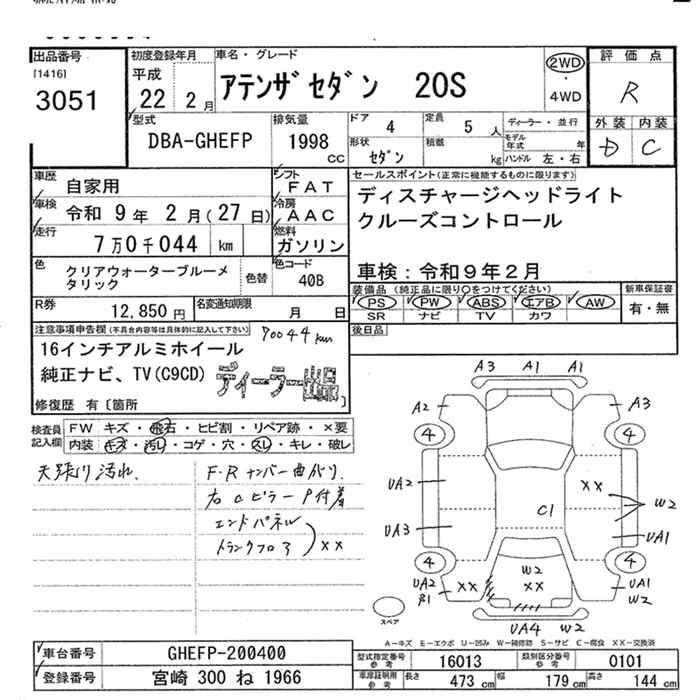 出品番号 初度登録年月 車名・グレード 評価点
[1416] 平成 アテンザセダン 20S 2WD R
3051 22 2月 4WD
型式 排気量 ドア 4 定員 5人 ディーラー・並行 外装 内装
DBA-GHEFP 1998 CC 形状 セダン 積載 kg モデル年式 年 D C
ハンドル 左・右
車歴 自家用 シフト FAT セールスポイント(正常に機能するものに限ります)
車検 令和9年2月(27日) 冷房 AAC ディスチャージヘッドライト
走行 7万0千044 km 燃料 ガソリン クルーズコントロール
色 クリアウォーターブルーメタリック 色替 色コード 40B 車検:令和9年2月
装備品(純正品に限り○をつけてください) 新車保証書
PS PW ABS エアB AW 有・無
SR ナビ TV カワ
R券 12,850円 名変通知期限 月 日
後日品
注意事項申告欄(不具合内容等は具体的に記入して下さい) 70044km
16インチアルミホイール
純正ナビ、TV(C9CD) ディーラー出品
修復歴 有〔箇所 〕
検査員記入欄 FW キズ・飛石・ヒビ割・リペア跡・×要
内装 キズ・汚レ・コゲ・穴・スレ・キレ・破レ
天張り汚れ、 F・Rナンバー曲がり、
右Cピラー P付着
エンドパネル
トランクフロア XX
A3 A1 A1
A2 A3
4 4
UA2 XX
C1 W2
UA3 UA1
4 4
UA2 XX W2 UA1
XX W2
UA4 W2
スペア
A-キズ E-エクボ U-凹み W-補修跡 S-サビ C-腐食 XX-交換済
車台番号 GHEFP-200400 型式指定番号 参考 16013 類別区分番号 参考 0101
登録番号 宮崎 300 ね 1966 車庫証明用 参考 長さ 473 cm 幅 179 cm 高さ 144 cm